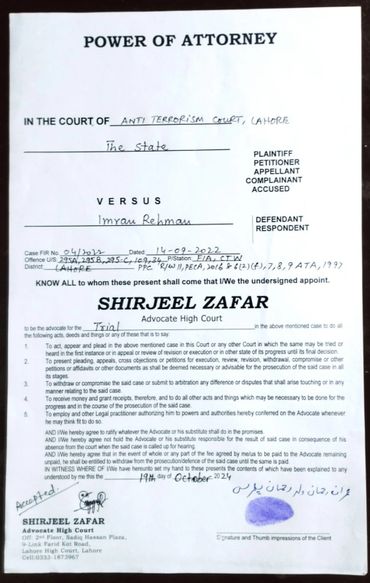 POWER OF ATTORNEY
IN THE COURT OF ANTI TERRORISM COURT, LAHORE
The State
PLAINTIFF
PETITIONER
APPELLANT
COMPLAINANT
ACCUSED
VERSUS
Imran Rehman
DEFENDANT
RESPONDENT
Case FIR No. 04/2022 Dated 14-09-2022
Offence U/S 295A, 295B, 295-C, 109, 34 P/Station FIA, CTW
District LAHORE PPC R/W 11, PECA, 2016 & 6(2)(f), 7, 8, 9 ATA, 1997
KNOW ALL to whom these present shall come that I/We the undersigned appoint.
SHIRJEEL ZAFAR
Advocate High Court
to be the advocate for the Trial in the above mentioned case to do all
the following acts, deeds and things or any of these that is to say:
1. To act, appear and plead in the above mentioned case in this Court or any other Court in which the same may be tried or
heard in the first instance or in appeal or review of revision or execution or in other state of its progress until its final decision.
2. To present pleading, appeals, cross objections or petitions for execution, review, revision, withdrawal, compromise or other
petitions or affidavits or other documents as shall be deemed necessary or advisable for the prosecution of the said case in all
its stages.
3. To withdraw or compromise the said case or submit to arbitration any difference or disputes that shall arise touching or in any
manner relating to the said case.
4. To receive money and grant receipts, therefore, and to do all other acts and things which may be necessary to be done for the
progress and in the course of the prosecution of the said case.
5. To employ and other Legal practitioner authorizing him to powers and authorities hereby conferred on the Advocate whenever
he may think fit to do so.
AND I/We hereby agree to ratify whatever the Advocate or his substitute shall do in the premises.
AND I/We hereby agree not hold the Advocate or his substitute responsible for the result of said case in consequence of his
absence from the court when the said case is called up for hearing.
AND I/We hereby agree that in the event of whole or any part of the fee agreed by me/us to be paid to the Advocate remaining
unpaid, he shall be entitled to withdraw from the prosecution/defence of the said case until the same is paid.
IN WITNESS WHERE OF I/We have hereunto set my hand to these presents the contents of which have been explained to any
understood by me this the 19th day of October 2024
Accepted.
SHIRJEEL ZAFAR
Advocate High Court
Off: 2nd Floor, Sadiq Hassan Plaza,
9-Link Farid Kot Road,
Lahore High Court, Lahore
Cell:0333-1673967
Signature and Thumb impressions of the Client